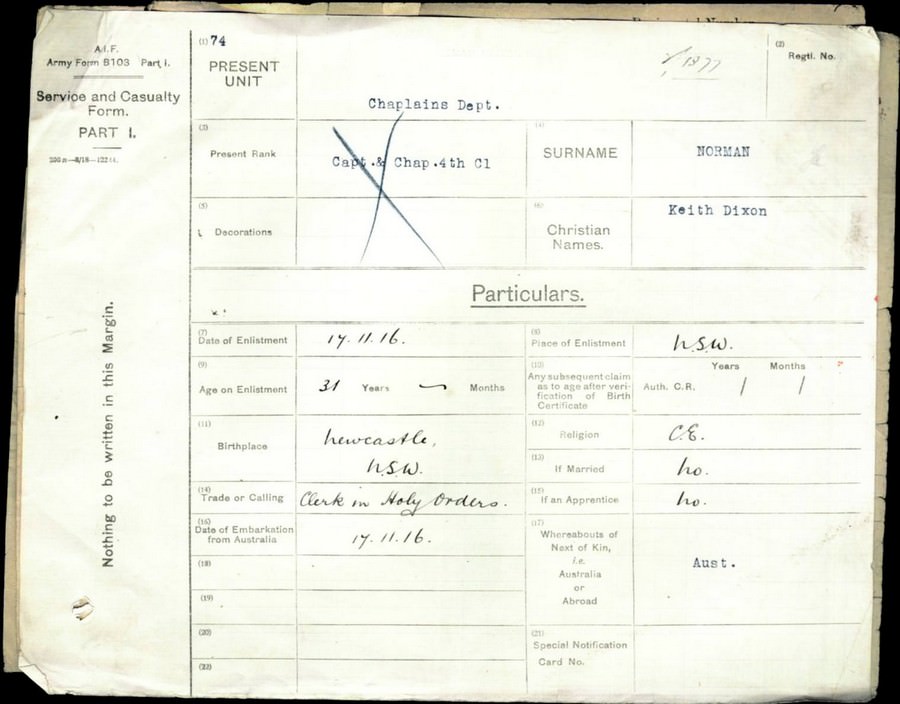 A.I.F.
Army Form B103 Part I.
Service and Casualty
Form.
PART I.
Nothing to be written in this Margin.
(1) 74
PRESENT
UNIT
Chaplains Dept.
1877
(2)
Regtl. No.
(3)
Present Rank
Capt.& Chap.4th Cl
(4)
SURNAME
NORMAN
(5)
Decorations
(6)
Christian
Names.
Keith Dixon
Particulars.
(7)
Date of Enlistment
17.11.16.
(8)
Place of Enlistment
N.S.W.
(9)
Age on Enlistment
31 Years — Months
(10)
Any subsequent claim
as to age after veri-
fication of Birth
Certificate
Years Months
Auth. C.R. / /
(11)
Birthplace
Newcastle,
N.S.W.
(12)
Religion
C.E.
(13)
If Married
No.
(14)
Trade or Calling
Clerk in Holy Orders.
(15)
If an Apprentice
No.
(16)
Date of Embarkation
from Australia
17.11.16.
(17)
Whereabouts of
Next of Kin,
i.e.
Australia
or
Abroad
Aust.
(18)
(19)
(20)
(21)
Special Notification
Card No.
(22)